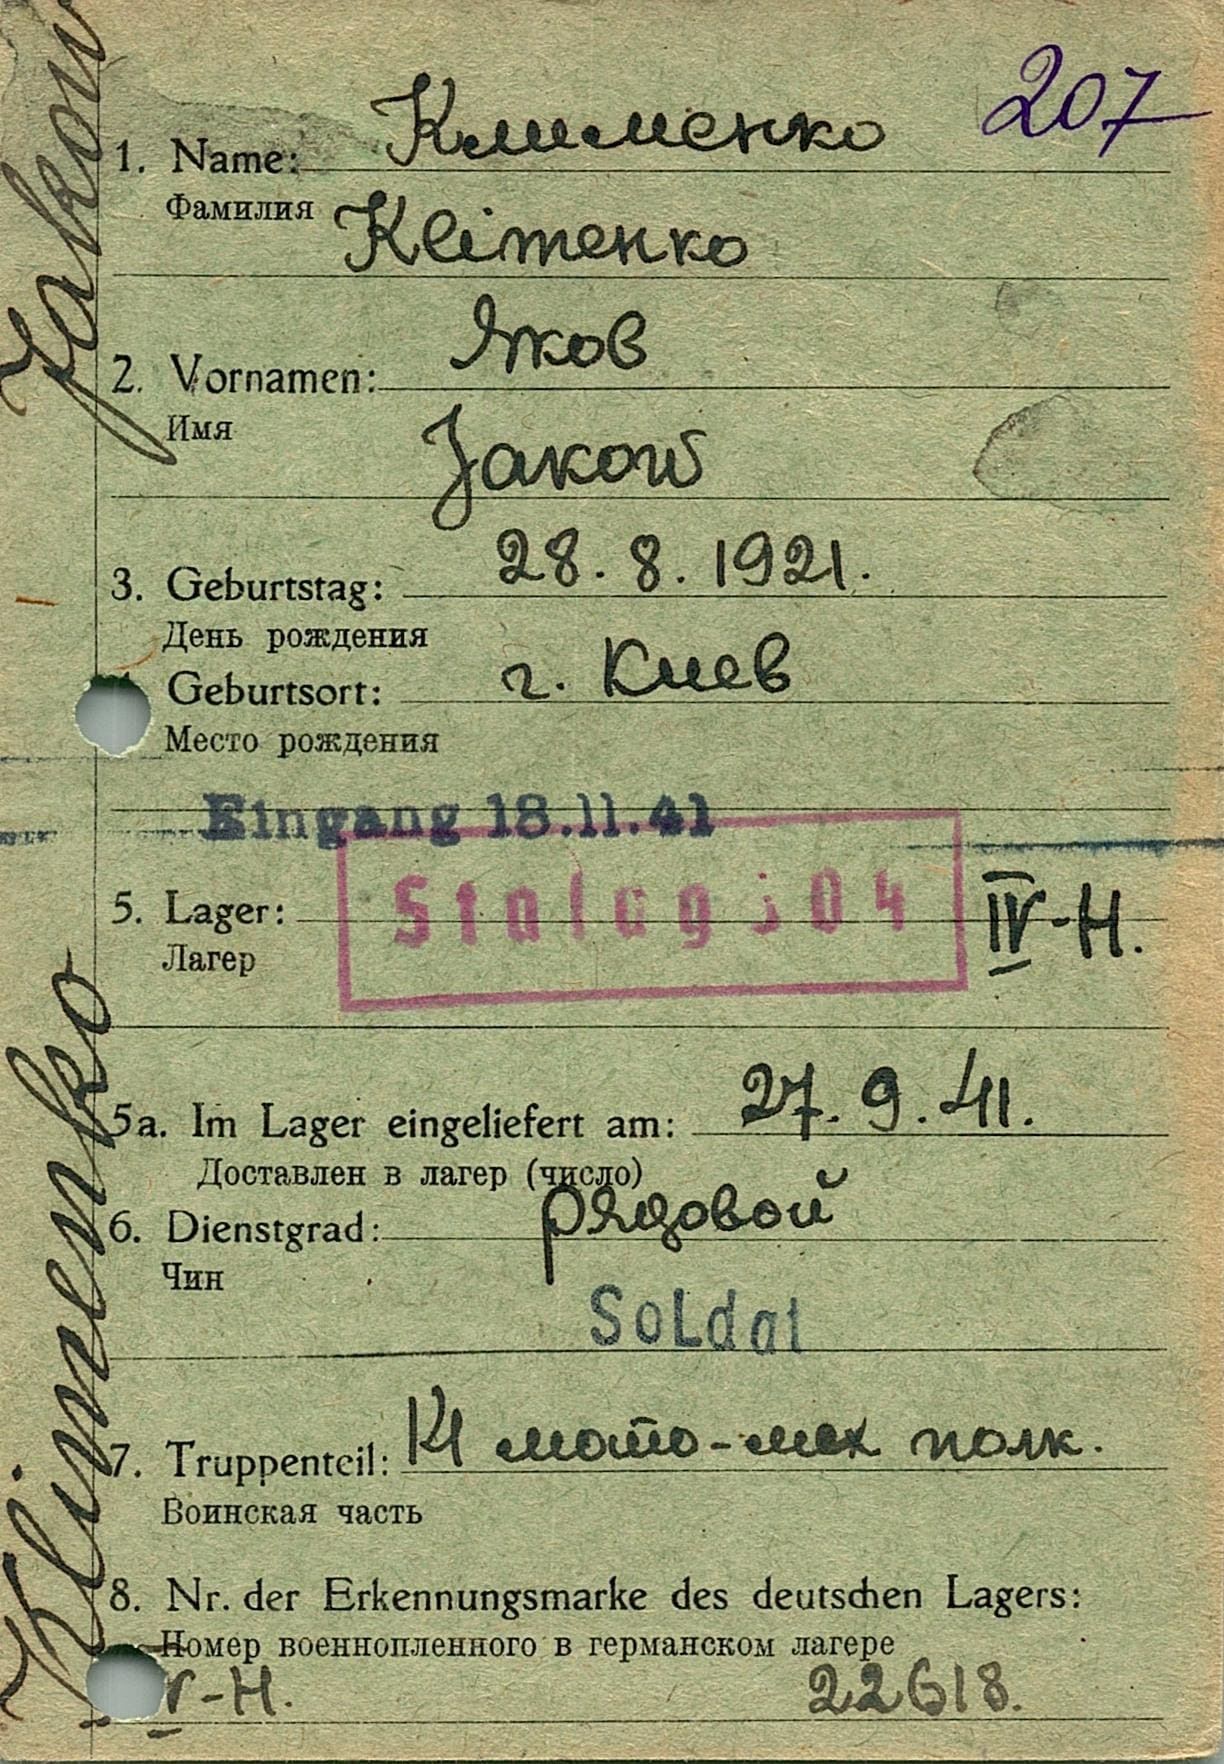 207
1. Name: Клименко
Фамилия
Klimenko
2. Vornamen: Яков
Имя
Jakow
3. Geburtstag: 28. 8. 1921.
День рождения
Geburtsort: г. Киев
Место рождения
Eingang 18.11.41
5. Lager: Stalag 304 IV-H.
Лагер
5a. Im Lager eingeliefert am: 27. 9. 41.
Доставлен в лагер (число)
6. Dienstgrad: рядовой
Чин
Soldat
7. Truppenteil: мото-мех полк.
Воинская часть
8. Nr. der Erkennungsmarke des deutschen Lagers:
Номер военнопленного в германском лагере
IV-H. 22618.
Klimenko Jakow